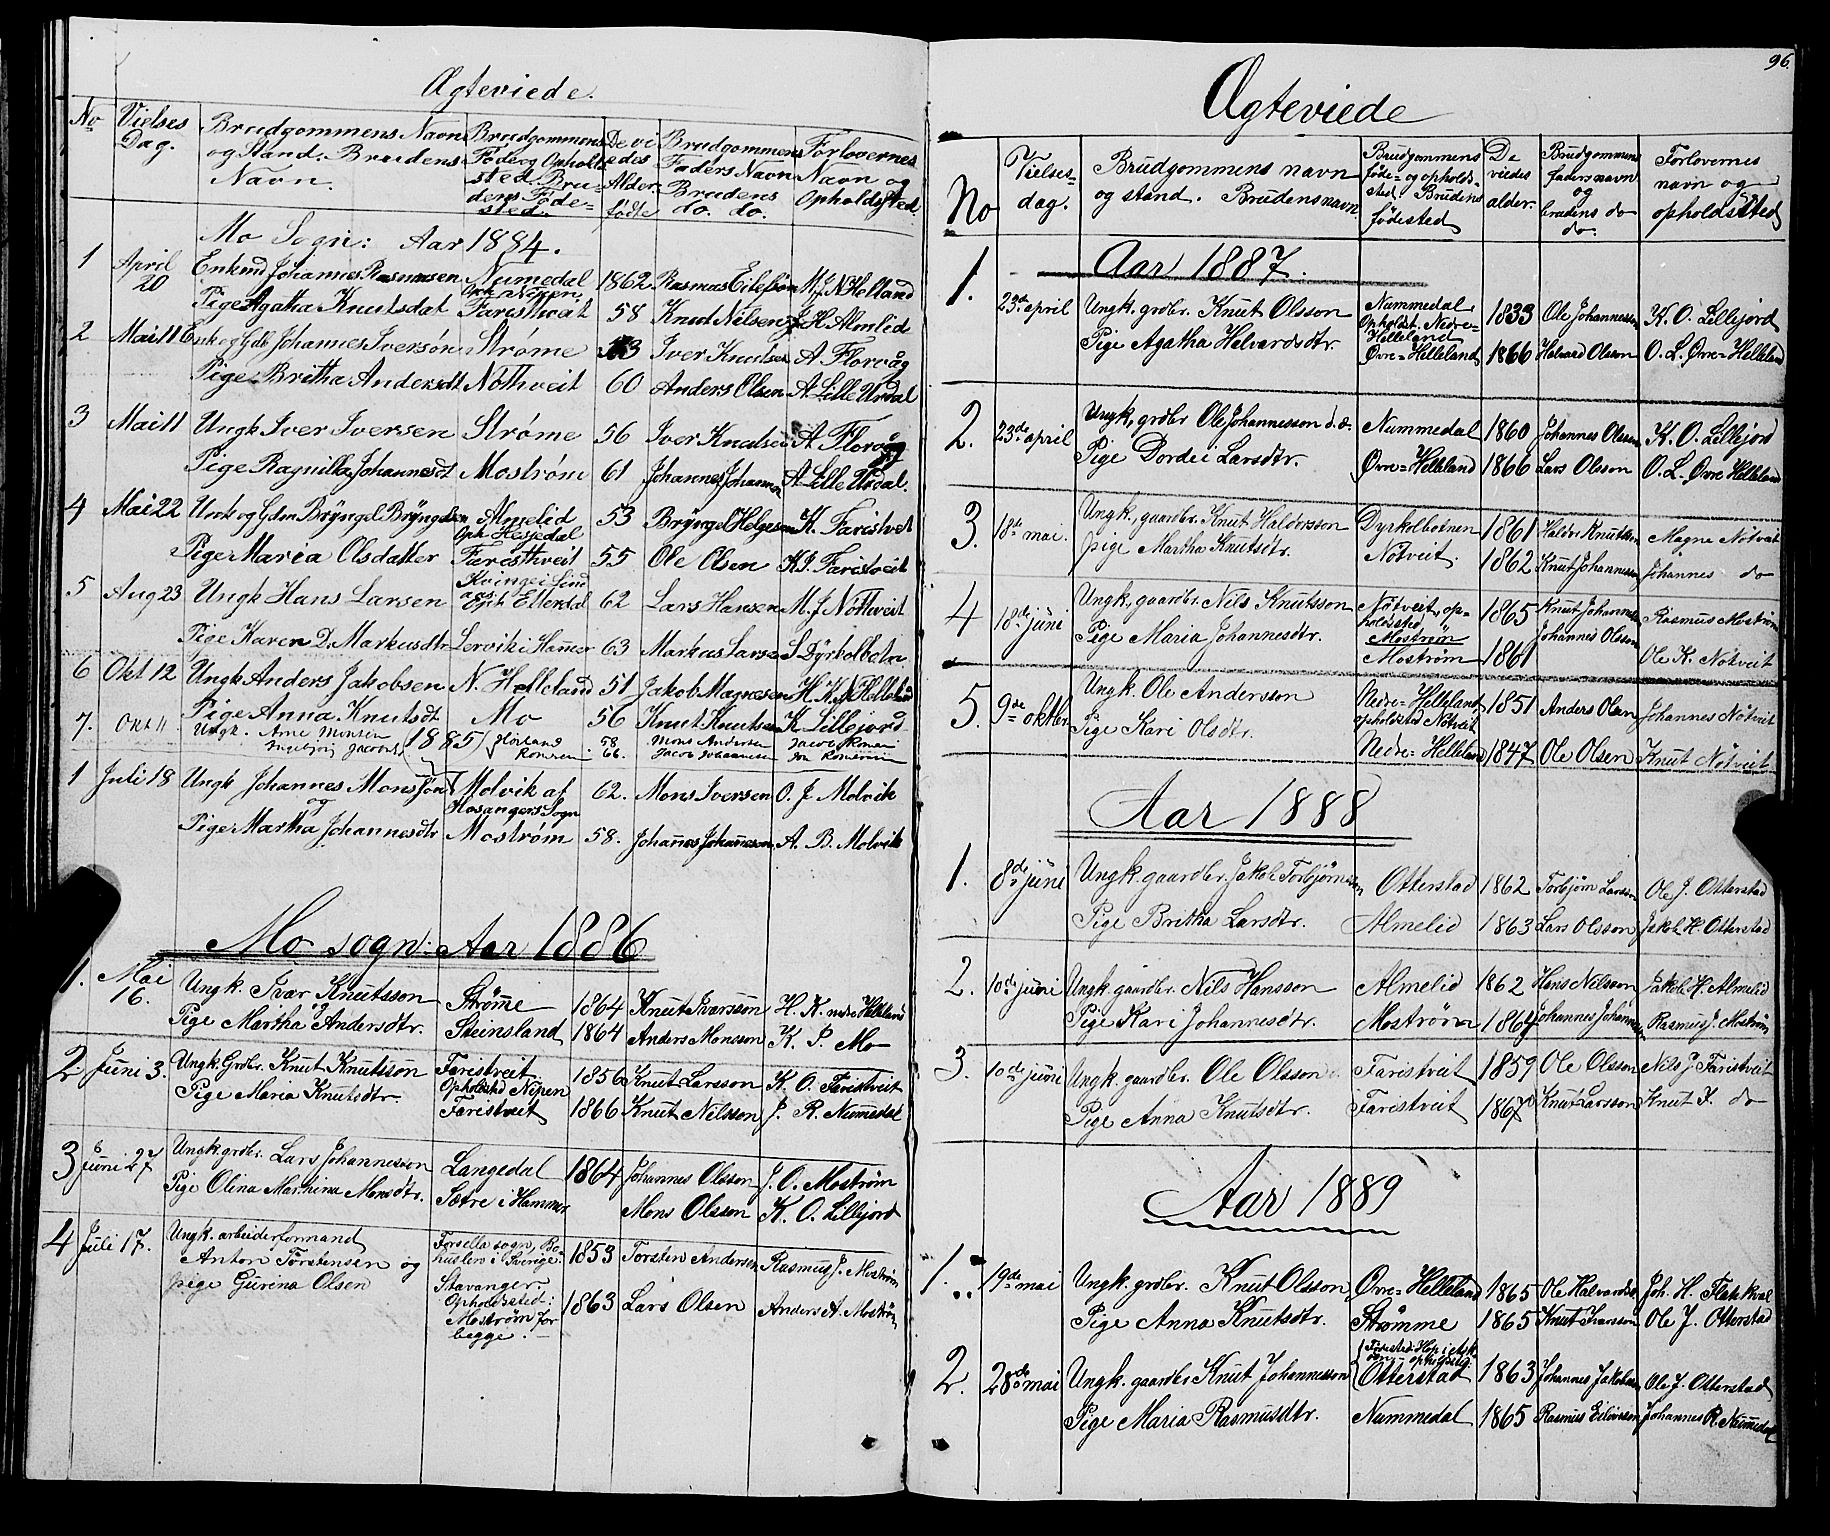 Ægteviede.
No
Vielses Dag.
Brudgommens Navn og Stand. Brudens Navn.
Brudgommens Føde og Opholdssted. Brudens Fødested.
De viedes Alder fødte
Brudgommens Faders Navn Brudens do. do.
Forlovernes Navn og Opholdssted.
Mo Sogn: Aar 1884.
1 April 20 Enkmd Johannes Rasmussen Numedal Oph. Nipen 1862 Rasmus Eilefsøn M. J. N Helland
Pige Agatha Knutsdat Faristveit 58 Knud Nilsen J. H. Almlid
2 Mai 11 Enk og Gdb Johannes Iversøn Strøme 53 Iver Knudsen A. Florvåg
Pige Britha Andersdt Nothveit 60 Anders Olsen A. Lille Urdal
3 Mai 11 Ungk Iver Iversen Strøme 56 Iver Knudsen A. Florvåg
Pige Ragnilla Johannesdt Mostrøm 61 Johannes Johannes A. Lille Urdal.
4 Mai 22 Unk og Gdm Brÿngel Brÿngelsen Almelid Oph Hesjedal 53 Brÿngel Helgesen K. Faristvet
Pige Maria Olsdatter Faristhveit 55 Ole Olsen K. J. Faristveit
5 Aug 23 Ungk Hans Larsen Kvinge i Lindaas Opt Ellerdal 62 Lars Hansen M. J. Nothveit
Pige Karen D. Markusdtr Lervik i Hammer 63 Markus Larsen S Dÿrkolbotn.
6 Okt 12 Ungk Anders Jakobsen N. Helleland 51 Jakob Magnesen H. K. N Helleland
Pige Anna Knutsdt Mo 56 Knut Knutsen K Lillejord
7. Okt 11 Ungk. Arne Monsen Høiland 58 Mons Andersen Jacob Romen
Ingebjørg Jacobsdt (1885) Romren 66. Jacob Johannesen
1 Juli 18 Ungk Johannes Monsøn Molvik af Hosangers Sogn 62. Mons Iversen O. J Molvik
og
Pige Martha Johannesdtr Mostrøm 58. Johannes Johannesen A. B. Molvik
Mo sogn: Aar 1886
1. Mai 16. Ungk. Ivar Knutsson Strømme 1864 Knut Ivarsson H. K. nedre Helleland
og
Pige Martha Andersdtr. Steensland 1864 Anders Monsson K. P. Mo
2 Juni 3. Ungk. Grdbr. Knut Knutsson Faristveit Opholdsted Nipen 1856 Knut Larsson K. O. Faristveit
Pige Maria Knutsdtr. Faristveit 1866 Knut Nilsson J. R. Numedal
3 Juni 27 Ungk. grdbr. Lars Johannesson Langedal 1864 Johannes Olsson J. O. Mostrøm
Pige Olina Marthina Monsdtr. Sætre i Hammer Mons Olsson K. O. Lillejord
4 Juli 17. Ungk. arbeiderformand Anton Torstensen og Forsella sogn, Bohuslen i Sverige. 1853 Torsten Andersen Rasmus J. Mostrøm
pige Gurina Olsen Stavanger Opholdssted: Mostrøm for begge. 1863 Lars Olsen Anders A. Mostrøm
96.
Ægteviede
No
Vielsesdag.
Brudgommens navn og stand. Brudens navn
Brudgommens føde- og opholdssted. Brudens fødested
De viedes alder.
Brudgommens faders navn og brudens do do.
Forlovernes navn og opholdssted
Aar 1887.
1. 23de april Ungk. grdbr. Knut Olsson Nummedal, Opholdst. Nedre-Helleland 1833 Ole Johannesson K. O. Lillejord
Pige Agatha Helvardsdtr. Øvre-Helleland 1866 Halvard Olsson O. L. Øvre-Helleland
2. 23de april Ungk, grdbr Ole Johannesson d. æ. Nummedal 1860 Johannes Olsson K. O. Lillejord
Pige Dordei Larsdtr. Øvre-Helleland 1866 Lars Olsson O. L. Øvre Helleland
3. 18de mai. Ungk., gaardbr. Knut Haldorsson Dyrkolbotnen 1861 Haldor Knutsson Magne Nøtveit
pige Martha Knutsdtr. Nøtveit. 1862 Knut Johannesson Johannes do
4 18de juni Ungk, gaardbr. Nils Knutsson Nøtveit, opholdssted Mostrøm 1865 Knut Johannesson Rasmus Mostrøm
Pige Maria Johannesdtr. Mostrøm 1861 Johannes Olsson Ole K. Nøtveit
5. 9de oktbr. Ungk. Ole Andersson Nedre-Helleland, opholdsted Nøtveit 1851 Anders Olsen Johannes Nøtveit
Pige Kari Olsdtr. Nedre-Helleland 1847 Ole Olsen Knut Nøtveit
Aar 1888
1. 8de juni Ungk. gaardbr. Jakob Torbjørnsson Otterstad 1862 Torbjørn Larsson Ole J. Otterstad
Pige Britha Larsdtr. Almelid 1863 Lars Olsson Jakob H. Otterstad
2. 10de juni Ungk. gaardbr. Nils Hansson Almelid 1862 Hans Nilsson Jakob H. Almelid
Pige Kari Johannesdtr. Mostrøm 1864 Johannes Johannesson Rasmus J. Mostrøm
3. 10de juni Ungk. gaardbr. Ole Olsson Faristveit 1859 Ole Olsson Nils J Faristveit
Pige Anna Knutsdtr. Faristveit 1867 Knut Larsson Knut K. do
Aar 1889
1. 19de mai Ungk. grdbr. Knut Olsson, Øvre-Helleland 1865 Ole Halvardss. Joh. H. Flatkval
Pige Anna Knutsdtr. Strømme 1865 Knut Ivarsson Ole J. Otterstad
2. 28de mai Ungk. gaardbr Knut Johannesson Fødested Hop i opholdsstg. Otterstad 1863 Johannes Jakobsen Ole J. Otterstad
Pige Maria Rasmusdtr. Nummedal 1865 Rasmus Eilivsson Johannes R. Nummedal